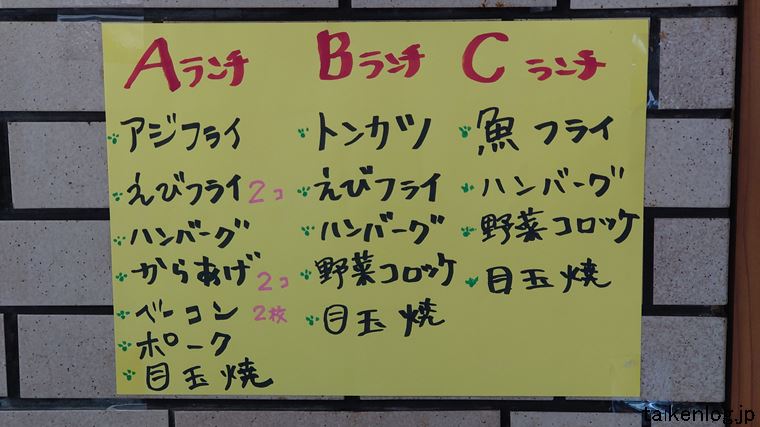 Aランチ
アジフライ
えびフライ 2コ
ハンバーグ
からあげ 2コ
ベーコン 2枚
ポーク
目玉焼
Bランチ
トンカツ
えびフライ
ハンバーグ
野菜コロッケ
目玉焼
Cランチ
魚フライ
ハンバーグ
野菜コロッケ
目玉焼
taikenlog.jp